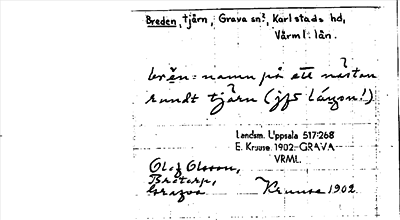 Breden, tjärn, Grava sn?, Karlstads hd,
Värml. län.
namn på ett nästan
rundt tjärn (jfs längon!)
Landsm. Uppsala 517:268
E. Kruuse 1902. GRAVA
VRML.
Olof Olsson,
Kruuse 1902.